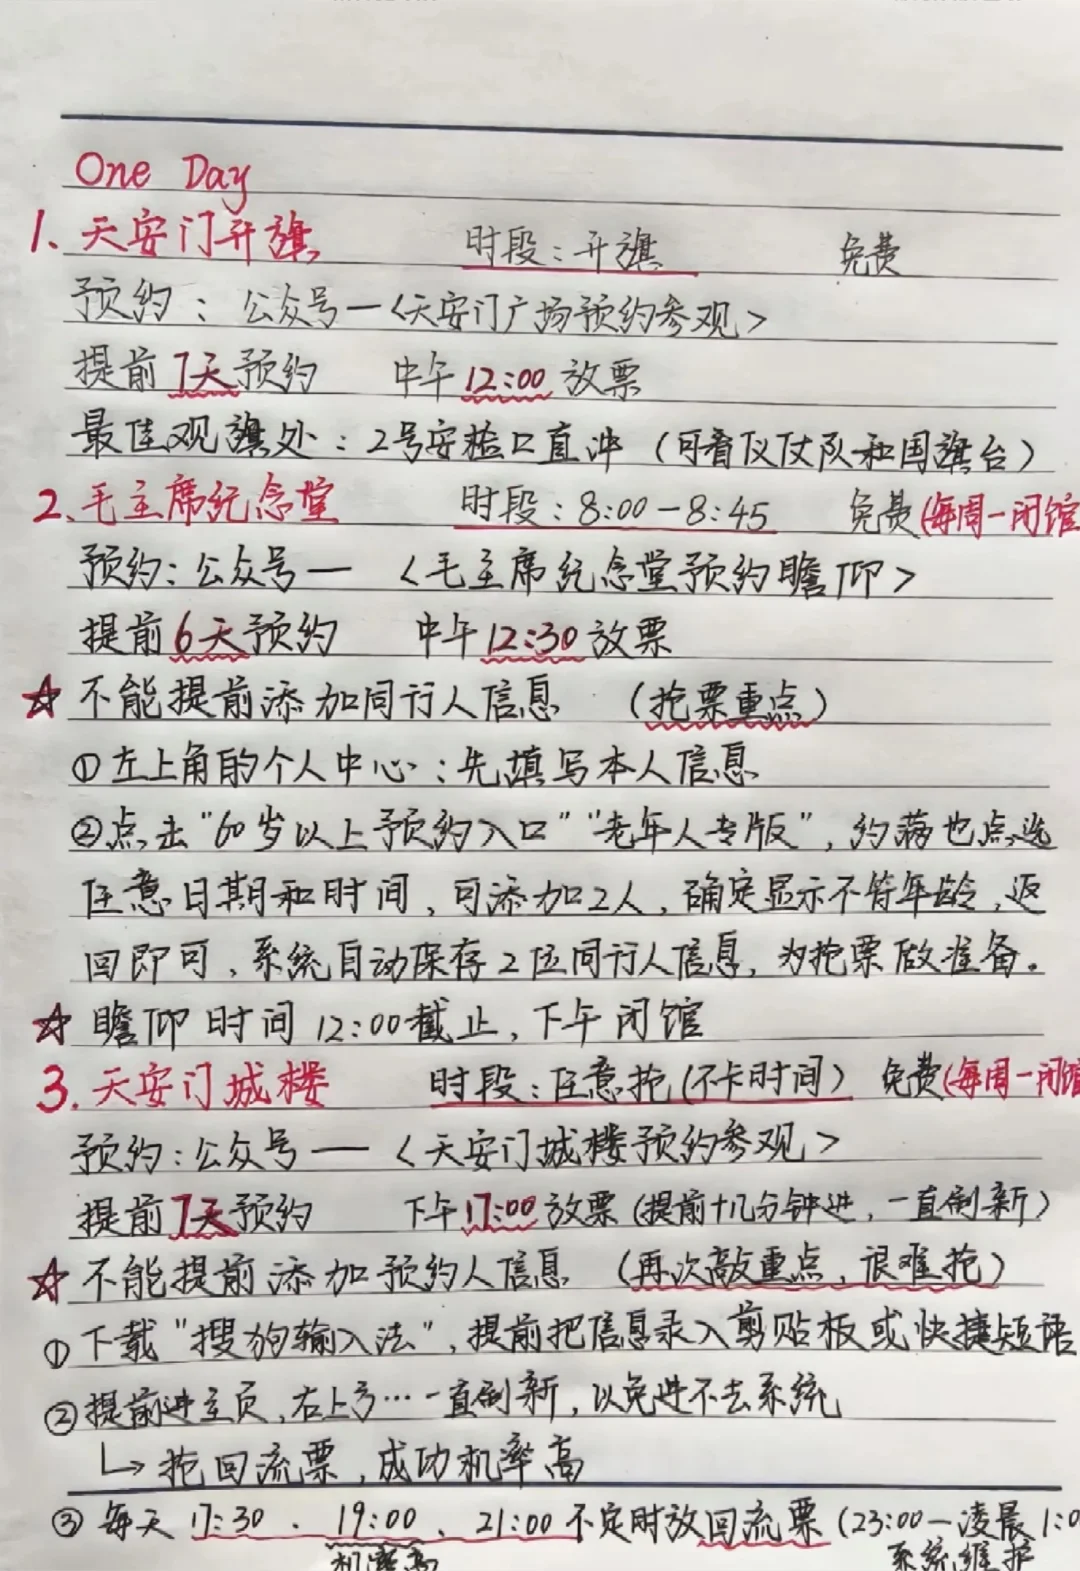 One Day
1、天安门升旗 时段：升旗 免费
预约：公众号—<天安门广场预约参观>
提前7天预约 中午12:00放票
最佳观旗处：2号安检口直冲（可看仪仗队和国旗台）
2、毛主席纪念堂 时段：8:00-8:45 免费(每周一闭馆
预约：公众号—<毛主席纪念堂预约瞻仰>
提前6天预约 中午12:30放票
☆不能提前添加同行人信息（抢票重点）
①左上角的个人中心：先填写本人信息
②点击"60岁以上预约入口""老年人专版"，约满也点选
任意日期和时间，可添加2人，确定显示不符年龄，返
回即可，系统自动保存2位同行人信息，为抢票做准备。
☆瞻仰时间12:00截止，下午闭馆
3.天安门城楼 时段：任意抢(不卡时间) 免费(每周一闭馆
预约：公众号—<天安门城楼预约参观>
提前7天预约 下午17:00放票(提前十几分钟进，一直刷新)
☆不能提前添加预约人信息（再次敲重点，很难抢）
①下载"搜狗输入法"，提前把信息录入剪贴板或快捷短语
②提前进主页，右上方…一直刷新，以免进不去系统
↳抢回流票，成功机率高
③每天17:30、19:00、21:00不定时放回流票(23:00-凌晨1:0
机率高 系统维护